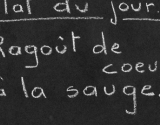 Plat du jour
Ragoût de
coeu
à la sauge.